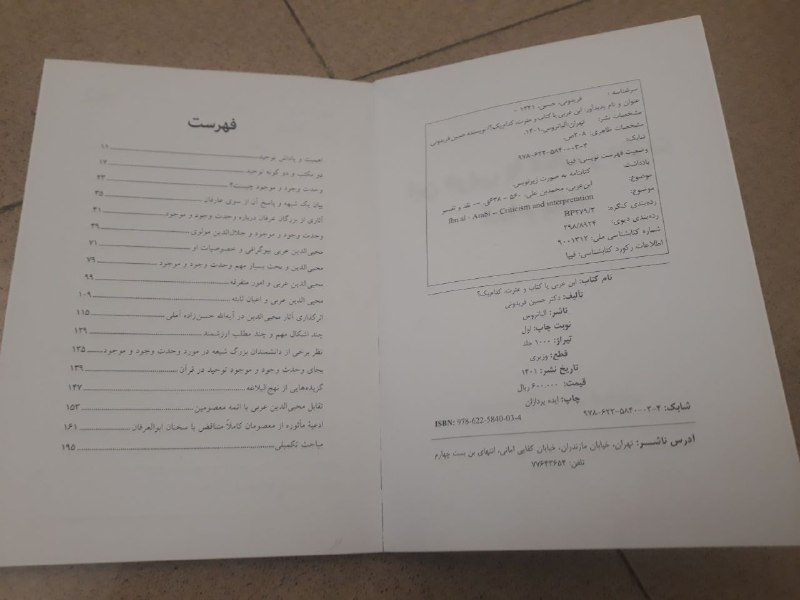 سرشناسه : فریدونی، حسین، ۱۳۴۱ -
عنوان و نام پدیدآور: ابن عربی یا کتاب و عترت، کدام‌یک؟/ نویسنده حسین فریدونی
مشخصات نشر: تهران: ۱۴۰۱
مشخصات ظاهری: ۲۰۸ص.
شابک: ۹۷۸-۶۲۲-۵۸۴۰-۰۳-۴
وضعیت فهرست نویسی: فیپا
یادداشت: کتابنامه به صورت زیرنویس.
موضوع: ابن‌عربی، محمدبن علی، ۵۶۰ - ۶۳۸ق. -- نقد و تفسیر
موضوع: Ibn al - Arabi -- Criticism and interpretation
رده‌بندی کنگره: BP۲۷۹/۲
رده‌بندی دیویی: ۲۹۸/۸۹۲۴
شماره کتابشناسی ملی: ۹۰۰۱۳۱۲
اطلاعات رکورد کتابشناسی: فیپا
نام کتاب: ابن عربی یا کتاب و عترت، کدام‌یک؟
تألیف: دکتر حسین فریدونی
ناشر:
نوبت چاپ: اول
تیراژ: ۱۰۰۰ جلد
قطع: وزیری
تاریخ نشر: ۱۴۰۱
قیمت: ۶۰۰,۰۰۰ ریال
چاپ: ایده پردازان
شابک: ۹۷۸-۶۲۲-۵۸۴۰-۰۳-۴ ISBN: 978-622-5840-03-4
ادرس ناشر: تهران، خیابان مازندران، خیابان کفایی امانی، انتهای بن بست چهارم
تلفن: ۷۷۶۴۳۶۵۴
فهرست
اهمیت و پاداش توحید ۱۱
دو مکتب و دو گونه توحید ۱۷
وحدت وجود و موجود چیست؟ ۲۳
بیان یک شبهه و پاسخ آن از سوی عارفان ۳۵
آثاری از بزرگان عرفان درباره وحدت وجود و موجود ۴۱
وحدت وجود و موجود و جلال‌الدین مولوی ۴۹
محیی‌الدین عربی بیوگرافی و خصوصیات او ۷۱
محیی‌الدین و بحث بسیار مهم وحدت وجود و موجود ۷۹
محیی‌الدین عربی و امور متفرقه ۹۹
محیی‌الدین عربی و اعیان ثابته ۱۰۹
اثرگذاری آثار محیی‌الدین در آیه‌الله حسن‌زاده آملی ۱۱۵
چند اشکال مهم و چند مطلب ارزشمند ۱۲۹
نظر برخی از دانشمندان بزرگ شیعه در مورد وحدت وجود و موجود ۱۳۵
بجای وحدت وجود و موجود توحید در قرآن ۱۳۹
گزیده‌هایی از نهج البلاغه ۱۴۷
تقابل محیی‌الدین عربی با ائمه معصومین ۱۵۳
ادعیهٔ مأثوره از معصومان کاملاً متناقض با سخنان ابوالعرفان ۱۶۱
مباحث تکمیلی ۱۹۵